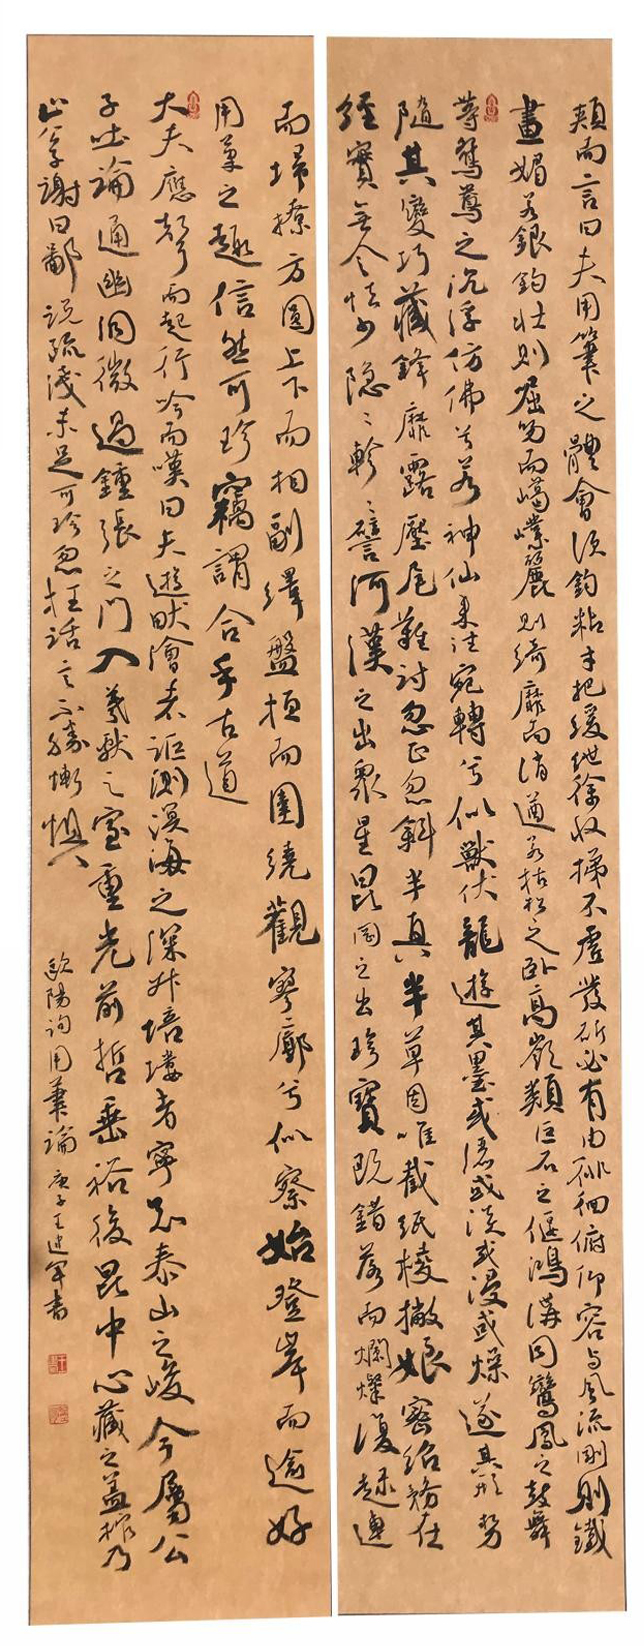 頰而言曰夫用筆之體會須鈎粘才把緩紲徐收梯不虛發斫必有由徘徊俯仰容與風流剛則鐵
畫媚若銀鈎壯則崛吻而嶱嵥麗則綺靡而清遒若枯松之卧高嶺類巨石之偃鴻溝同鸞鳳之鼓舞
等鴛鴦之沉浮仿佛兮若神仙來往宛轉兮似獸伏龍遊其墨或濃或淡或浸或燥遂其形勢
隨其變巧藏鋒靡露壓尾難討忽正忽斜半真半草因唯截紙棱撇娘密紹務在
經實無令怯少隱隱軫軫譬河漢之出衆星昆岡之出珍寶既錯落而爛燦復趢連
而埽撩方圓上下而相副繹盤桓而圍繞觀寥廓兮似察始登岸而逾好
用筆之趣信然可珍竊謂合乎古道
大夫應聲而起行吟而嘆曰夫遊畎澮者詎測溟海之深升培塿者寧知泰山之峻今屬公
子吐論通幽洞微過鍾張之門入羲獻之室重光前哲垂裕後昆中心藏之蓋棺乃
止公子謝曰鄙說疏淺未足可珍忽枉話言不勝慚惧
歐陽詢用筆論庚子王建軍書